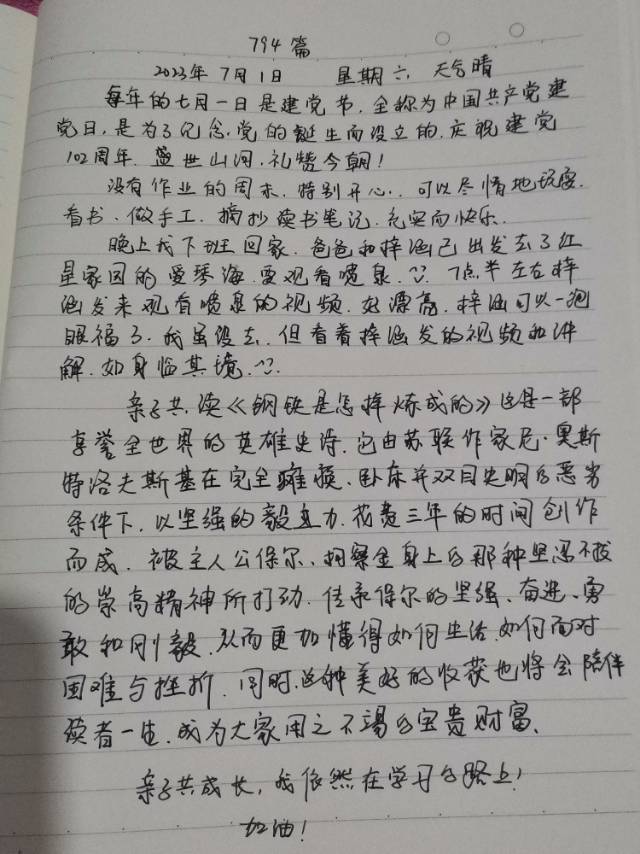 794篇
2023年7月1日 星期六 天气晴
每年的七月一日是建党节,全称为中国共产党建
党日,是为了纪念党的诞生而设立的.庆祝建党
102周年.盛世山河.礼赞今朝!
没有作业的周末.特别开心..可以尽情地玩耍.
看书、做手工、摘抄读书笔记.充实而快乐.
晚上我下班回家.爸爸和梓涵已出发去了红
星家园的爱琴海.要观看喷泉.7点半左右梓
涵发来观看喷泉的视频.好漂亮.梓涵可以一饱
眼福了.我虽没去.但看着梓涵发的视频和讲
解.如身临其境.
亲子共读《钢铁是怎样炼成的》这是一部
享誉全世界的英雄史诗.它由苏联作家尼·奥斯
特洛夫斯基在完全瘫痪、卧床并双目失明的恶劣
条件下.以坚强的毅力.花费三年的时间创作
而成.被主人公保尔、柯察金身上的那种坚忍不拔
的崇高精神所打动.传承保尔的坚强、奋进、勇
敢和刚毅.从而更加懂得如何生活.如何面对
困难与挫折.同时.这种美好的收获也将会陪伴
读者一生.成为大家用之不竭的宝贵财富.
亲子共成长,我依然在学习的路上!
加油!